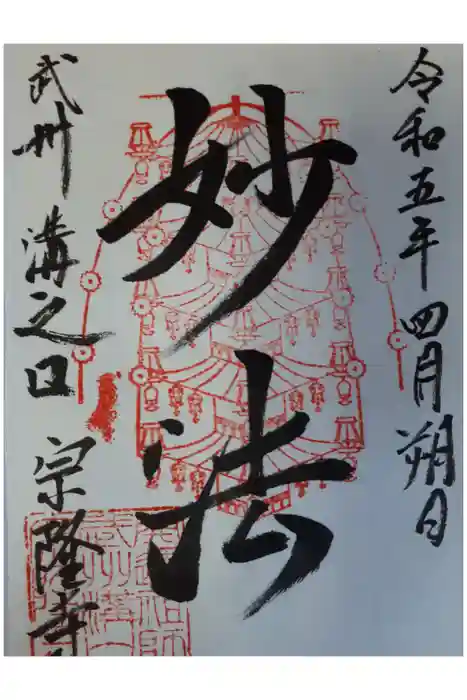 令和五年四月朔日
妙法
武州溝之口宗隆寺